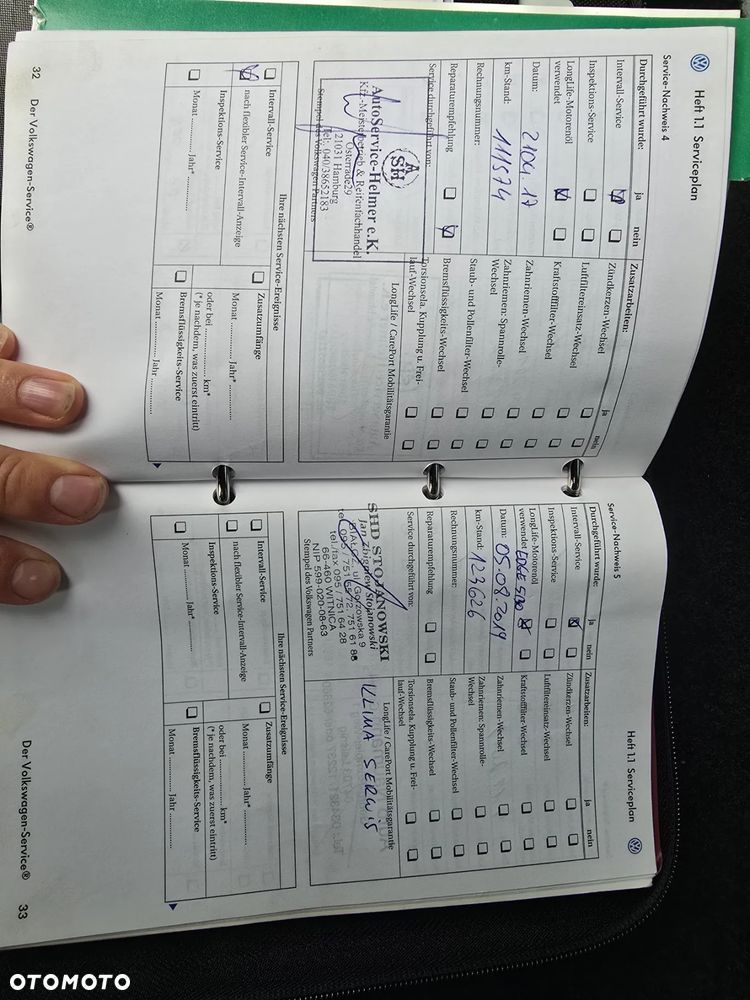 Heft 1.1 Serviceplan
Service-Nachweis 4
Durchgeführt wurde: ja nein
Intervall-Service
Inspektions-Service
LongLife-Motorenöl
verwendet
Datum: 21.04.17
km-Stand: 111574
Rechnungsnummer:
Reparaturempfehlung
Service durchgeführt von:
ASH
AutoService-Helmer e.K.
Kfz.-Meisterbetrieb & Reifenfachhandel
Osterrade29
21031 Hamburg
Tel.: 040/38652183
Stempel des Volkswagen Partners
Zusatzarbeiten: ja nein
Zündkerzen-Wechsel
Luftfiltereinsatz-Wechsel
Kraftstofffilter-Wechsel
Zahnriemen-Wechsel
Zahnriemen: Spannrolle-
Wechsel
Staub- und Pollenfilter-Wechsel
Bremsflüssigkeits-Wechsel
Torsionsela. Kupplung u. Frei-
lauf-Wechsel
LongLife / CarePort Mobilitätsgarantie
Ihre nächsten Service-Ereignisse
Intervall-Service
nach flexibler Service-Intervall-Anzeige
Inspektions-Service
Monat ............... Jahr* ...............
Zusatzumfänge
Monat ............... Jahr* ...............
oder bei ............... km*
(* je nachdem, was zuerst eintritt)
Bremsflüssigkeits-Service
Monat ............... Jahr ...............
32 Der Volkswagen-Service®
Heft 1.1 Serviceplan
Service-Nachweis 5
Durchgeführt wurde: ja nein
Intervall-Service
Inspektions-Service
LongLife-Motorenöl
verwendet EDGE 5W30
Datum: 05.08.2019
km-Stand: 123626
Rechnungsnummer:
Reparaturempfehlung
Service durchgeführt von:
SHD STOJANOWSKI
Jan Zbigniew Stojanowski
BIAŁCZ, ul. Gorzowska 9
tel./fax 095 / 751 64 28
66-460 WITNICA
NIP 599-020-08-63
Stempel des Volkswagen Partners
Zusatzarbeiten: ja nein
Zündkerzen-Wechsel
Luftfiltereinsatz-Wechsel
Kraftstofffilter-Wechsel
Zahnriemen-Wechsel
Zahnriemen: Spannrolle-
Wechsel
Staub- und Pollenfilter-Wechsel
Bremsflüssigkeits-Wechsel
Torsionsela. Kupplung u. Frei-
lauf-Wechsel
LongLife / CarePort Mobilitätsgarantie
KLIMA SERWIS
Ihre nächsten Service-Ereignisse
Intervall-Service
nach flexibler Service-Intervall-Anzeige
Inspektions-Service
Monat ............... Jahr* ...............
Zusatzumfänge
Monat ............... Jahr* ...............
oder bei ............... km*
(* je nachdem, was zuerst eintritt)
Bremsflüssigkeits-Service
Monat ............... Jahr ...............
Der Volkswagen-Service® 33
OTOMOTO